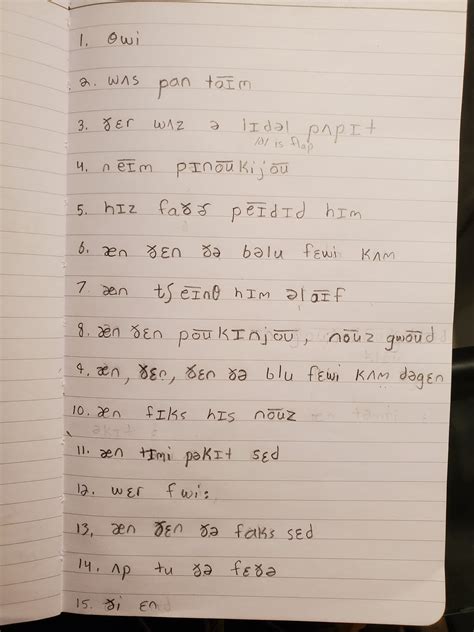 1. θwi
2. wʌs pan ta͞ɪm
3. ɤɛr wʌz ə lɪdəl pʌpɪt
/d/ is flap
4. n e͞ɪm pɪno͞ʊkijo͞ʊ
5. hɪz faɤɤ pe͞ɪdɪd hɪm
6. æn ɤɛn ɤə bəlu fɛwi kʌm
7 æn tʃe͞ɪnθ hɪm əla͞ɪf
8. æn ɤɛn po͞ʊkɪnjo͞ʊ, no͞ʊz gwo͞ʊd
9. æn, ɤɛn, ɤɛn ɤə blu fɛwi kʌm dəgɛn
10. æn fɪks hɪs no͞ʊz
11. æn tɪmi pəkɪt sɛd
12. wɛr fwi:
13, æn ɤɛn ɤə faks sɛd
14. ʌp tu ɤə fɛɤə
15. ɤi ɛn